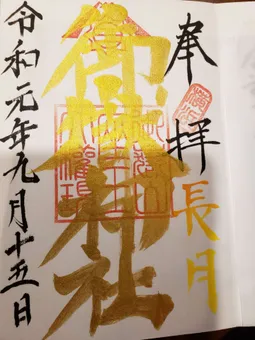 奉拝
長月
御嶽神社
令和元年九月十五日